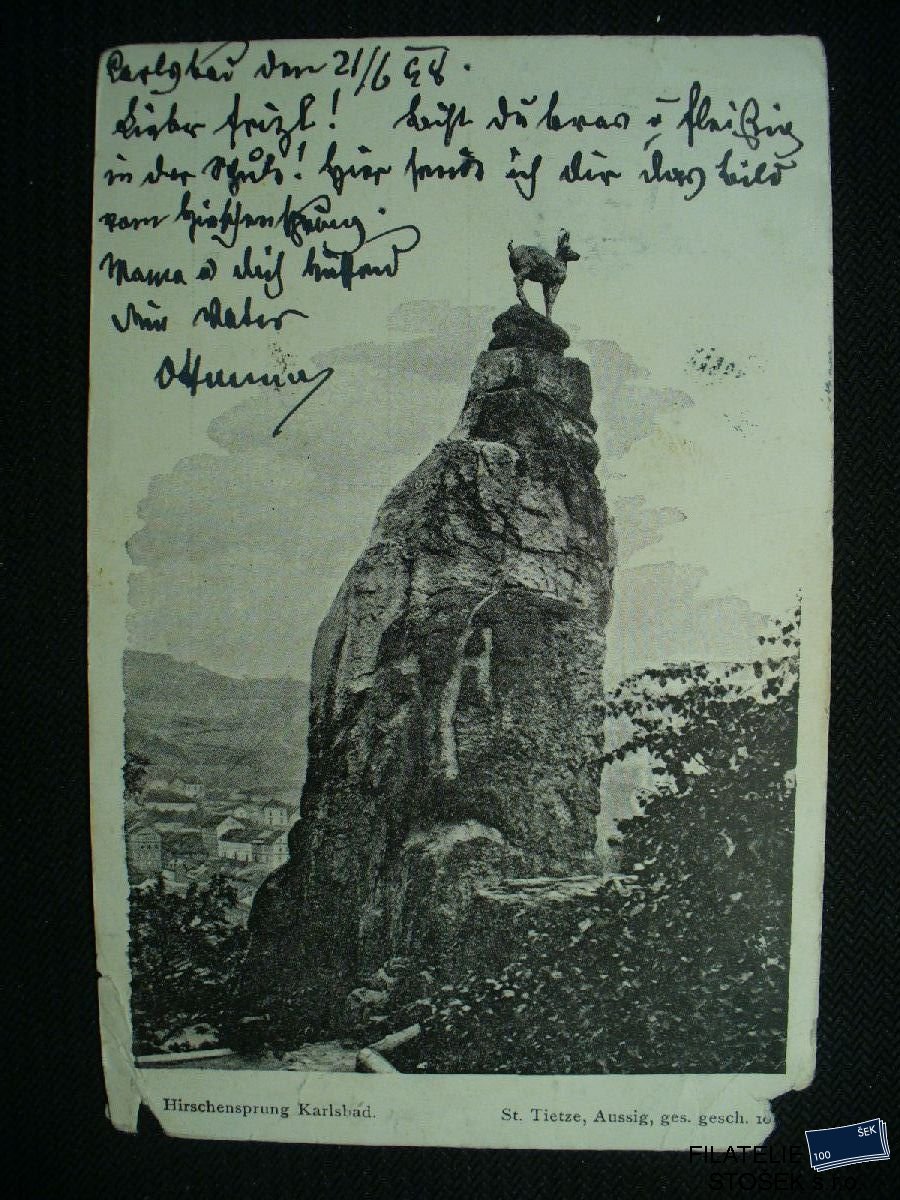 Carlsbad den 21/6 98.
Lieber Fritzl! Lerne du brav u fleißig
in der Schule! Hier sende ich dir das Bild
vom Hirschensprung.
Mama u dich küssend
dein Vater
Hirschensprung Karlsbad.
St. Tietze, Aussig, ges. gesch.
FILATELIE
STOSEK s.r.o.
100
ŠEK